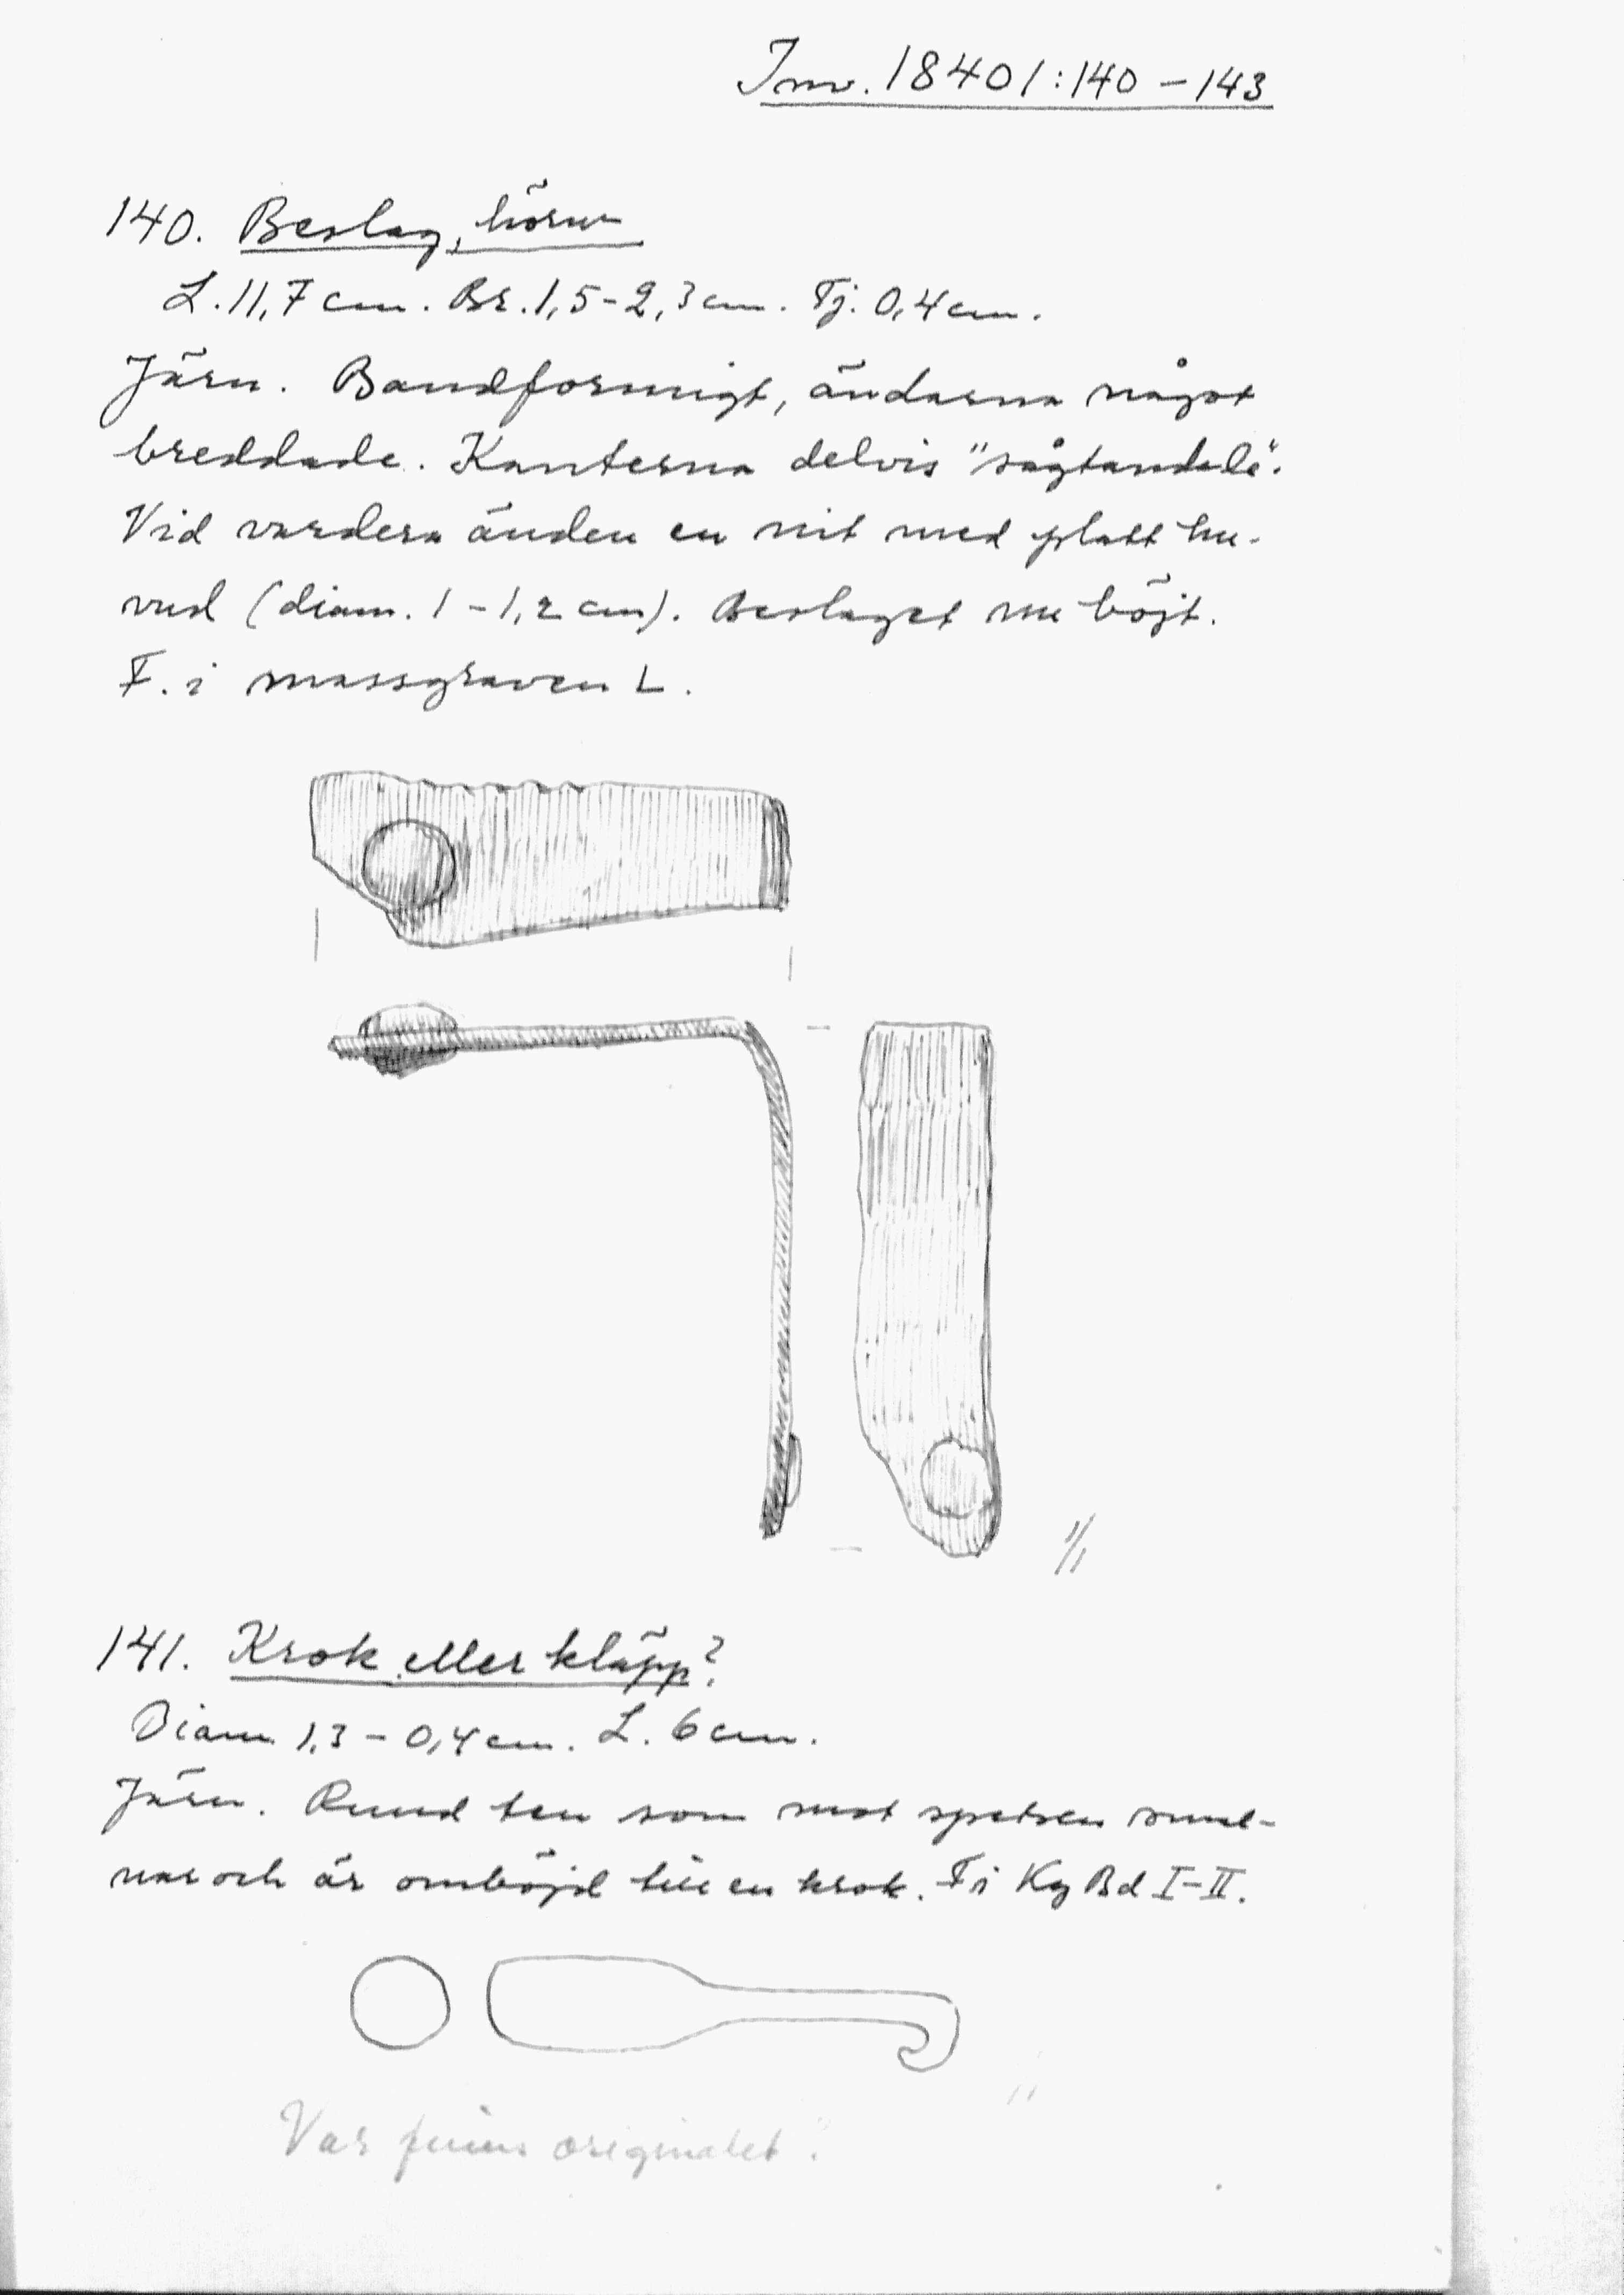 Inv. 18401:140 – 143
140. Beslag, hörn
L. 11,7 cm. Br. 1,5-2,3 cm. Tj. 0,4 cm.
Järn. Bandformigt, ändarna något
breddade. Kanterna delvis "sågtandade".
Vid vardera änden en nit med platt hu-
vud (diam. 1 – 1,2 cm). Beslaget nu böjt.
F. i massgraven L.
1/1
141. Krok eller kläpp?
Diam. 1,3 – 0,4 cm. L. 6 cm.
Järn. Rund ten som mot spetsen smal-
nar och är omböjd till en krok. F i Kg Bd I-II.
Var finns originalet?